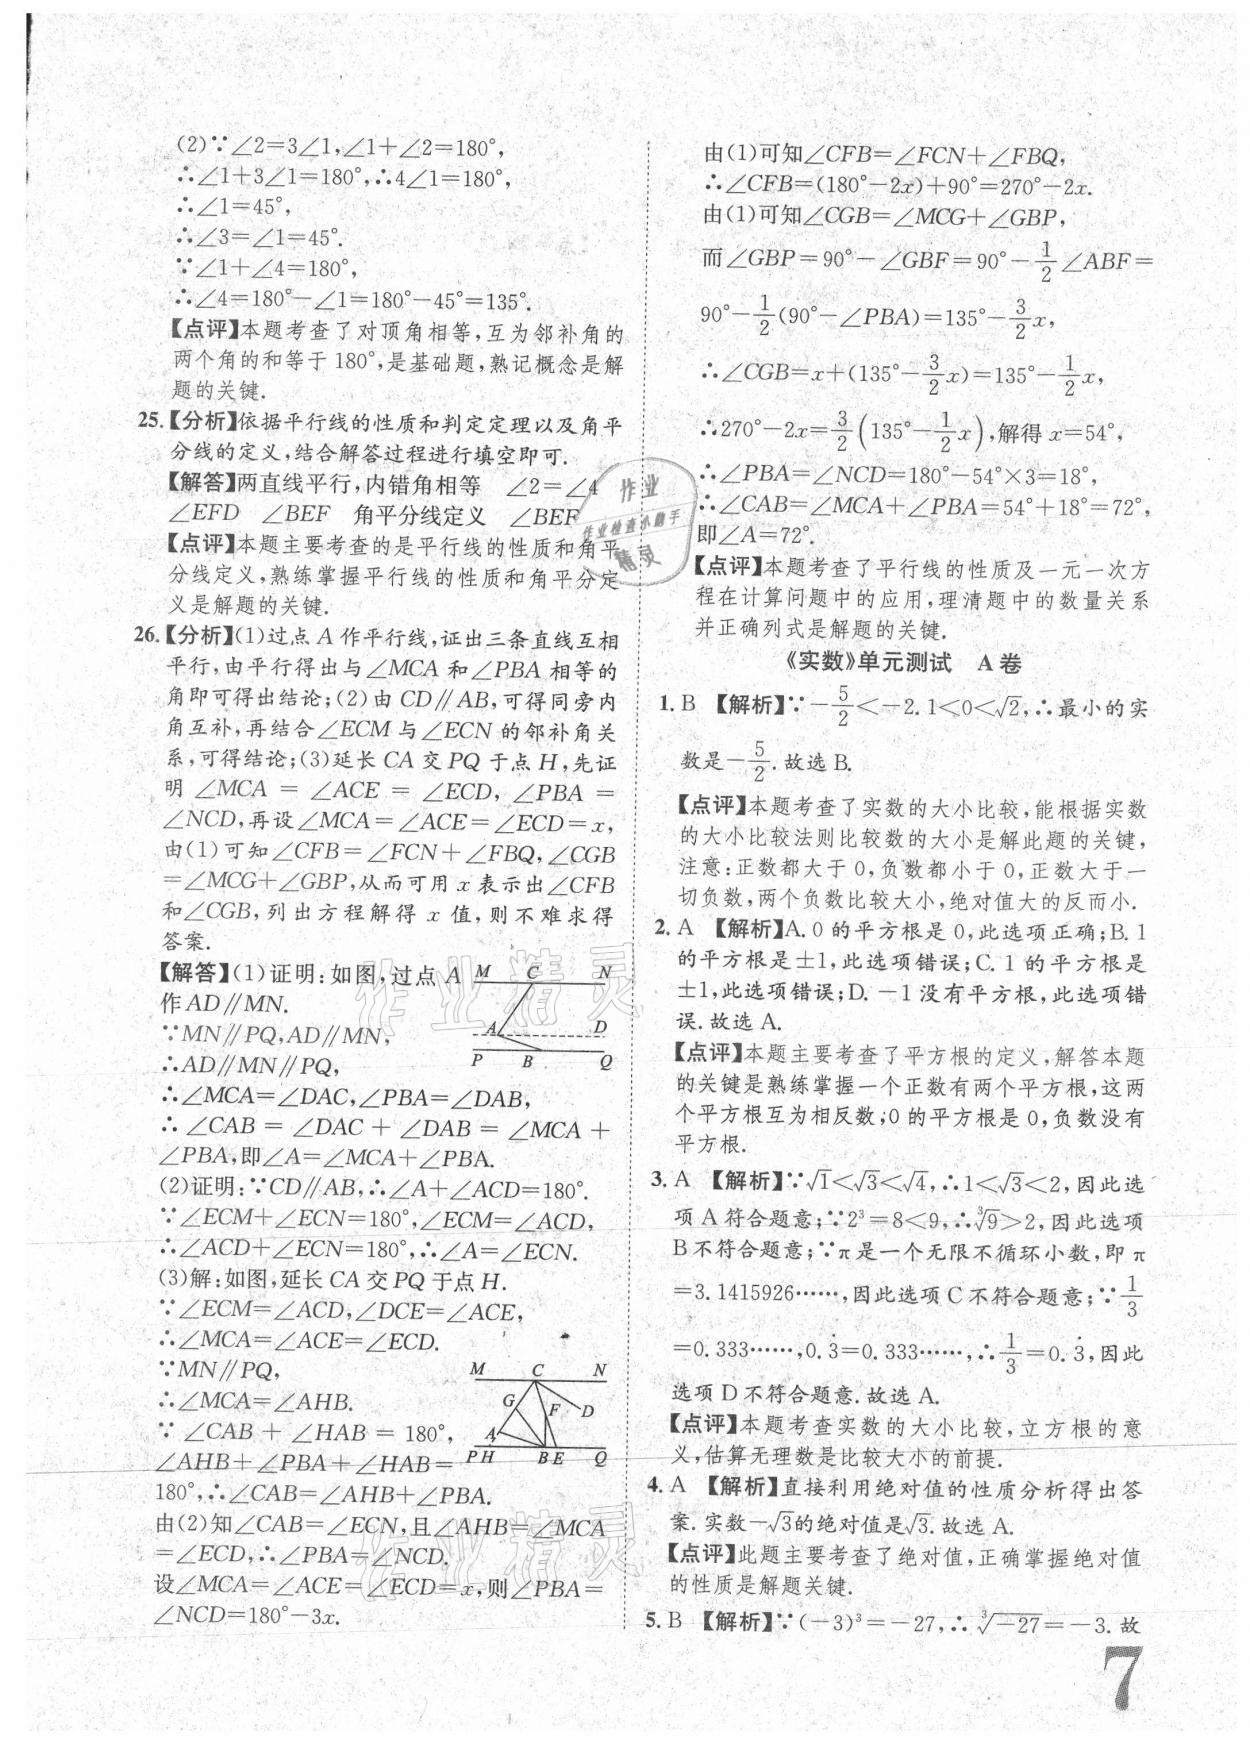 (2)∵∠2=3∠1,∠1+∠2=180°,
∴∠1+3∠1=180°,∴4∠1=180°,
∴∠1=45°,
∴∠3=∠1=45°.
∵∠1+∠4=180°,
∴∠4=180°-∠1=180°-45°=135°.
【点评】本题考查了对顶角相等,互为邻补角的
两个角的和等于180°,是基础题,熟记概念是解
题的关键.
25.【分析】依据平行线的性质和判定定理以及角平
分线的定义,结合解答过程进行填空即可.
【解答】两直线平行,内错角相等 ∠2=∠4
∠EFD ∠BEF 角平分线定义 ∠BEF
【点评】本题主要考查的是平行线的性质和角平
分线定义,熟练掌握平行线的性质和角平分定
义是解题的关键.
26.【分析】(1)过点A作平行线,证出三条直线互相
平行,由平行得出与∠MCA和∠PBA相等的
角即可得出结论;(2)由CD∥AB,可得同旁内
角互补,再结合∠ECM与∠ECN的邻补角关
系,可得结论;(3)延长CA交PQ于点H,先证
明∠MCA=∠ACE=∠ECD,∠PBA=
∠NCD,再设∠MCA=∠ACE=∠ECD=x,
由(1)可知∠CFB=∠FCN+∠FBQ,∠CGB
=∠MCG+∠GBP,从而可用x表示出∠CFB
和∠CGB,列出方程解得x值,则不难求得
答案.
【解答】(1)证明:如图,过点A
作AD∥MN.
∵MN∥PQ,AD∥MN,
∴AD∥MN∥PQ,
∴∠MCA=∠DAC,∠PBA=∠DAB,
∴∠CAB=∠DAC+∠DAB=∠MCA+
∠PBA,即∠A=∠MCA+∠PBA.
(2)证明:∵CD∥AB,∴∠A+∠ACD=180°.
∵∠ECM+∠ECN=180°,∠ECM=∠ACD,
∴∠ACD+∠ECN=180°,∴∠A=∠ECN.
(3)解:如图,延长CA交PQ于点H.
∵∠ECM=∠ACD,∠DCE=∠ACE,
∴∠MCA=∠ACE=∠ECD.
∵MN∥PQ,
∴∠MCA=∠AHB.
∵∠CAB+∠HAB=180°,
∠AHB+∠PBA+∠HAB=
180°,∴∠CAB=∠AHB+∠PBA.
由(2)知∠CAB=∠ECN,且∠AHB=∠MCA
=∠ECD,∴∠PBA=∠NCD.
设∠MCA=∠ACE=∠ECD=x,则∠PBA=
∠NCD=180°-3x.
M C N
A D
P B Q
M C N
G F D
A
P H B E Q
由(1)可知∠CFB=∠FCN+∠FBQ,
∴∠CFB=(180°-2x)+90°=270°-2x.
由(1)可知∠CGB=∠MCG+∠GBP,
而∠GBP=90°-∠GBF=90°-1/2∠ABF=
90°-1/2(90°-∠PBA)=135°-3/2x,
∴∠CGB=x+(135°-3/2x)=135°-1/2x,
∴270°-2x=3/2(135°-1/2x),解得x=54°,
∴∠PBA=∠NCD=180°-54°×3=18°,
∴∠CAB=∠MCA+∠PBA=54°+18°=72°,
即∠A=72°.
【点评】本题考查了平行线的性质及一元一次方
程在计算问题中的应用,理清题中的数量关系
并正确列式是解题的关键.
《实数》单元测试 A卷
1.B 【解析】∵-5/2<-2.1<0<√2,∴最小的实
数是-5/2.故选B.
【点评】本题考查了实数的大小比较,能根据实数
的大小比较法则比较数的大小是解此题的关键,
注意:正数都大于0,负数都小于0,正数大于一
切负数,两个负数比较大小,绝对值大的反而小.
2.A 【解析】A.0的平方根是0,此选项正确;B.1
的平方根是±1,此选项错误;C.1的平方根是
±1,此选项错误;D.-1没有平方根,此选项错
误.故选A.
【点评】本题主要考查了平方根的定义,解答本题
的关键是熟练掌握一个正数有两个平方根,这两
个平方根互为相反数;0的平方根是0,负数没有
平方根.
3.A 【解析】∵√1<√3<√4,∴1<√3<2,因此选
项A符合题意;∵2³=8<9,∴∛9>2,因此选项
B不符合题意;∵π是一个无限不循环小数,即π
=3.1415926……,因此选项C不符合题意;∵1/3
=0.333……,0.3̇=0.333……,∴1/3=0.3̇,因此
选项D不符合题意.故选A.
【点评】本题考查实数的大小比较,立方根的意
义,估算无理数是比较大小的前提.
4.A 【解析】直接利用绝对值的性质分析得出答
案.实数-√3的绝对值是√3.故选A.
【点评】此题主要考查了绝对值,正确掌握绝对值
的性质是解题关键.
5.B 【解析】∵(-3)³=-27,∴∛-27=-3.故
7
作业
作业检查小助手
精灵
作业精灵
作业精灵